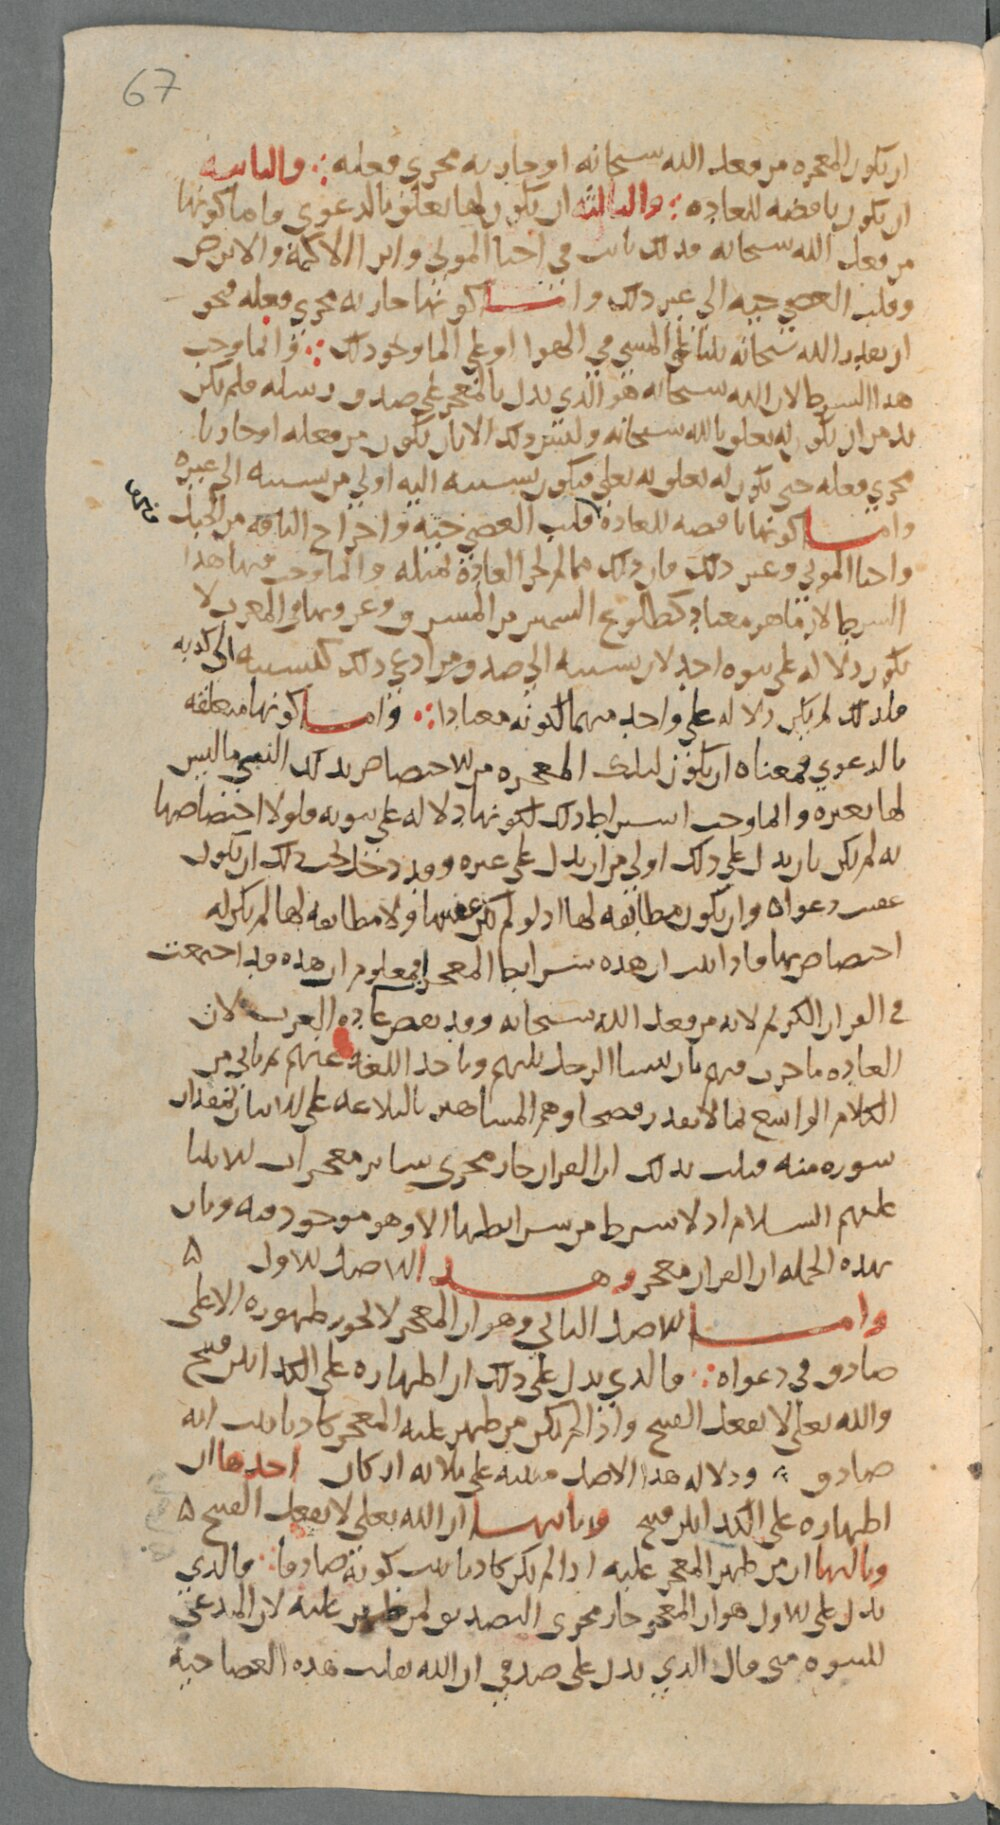 67
ان يكون المعجزه من فعل الله سبحانه او جاريه مجرى فعله ؞ والثانيه
ان يكون ناقضه للعاده ؞ والثالثة ان يكون لها تعلق بالدعوى واما كونها
من فعل الله سبحانه فذلك ثابت في احيا الموتى وابرا الاكمة والابرص
وقلب العصى حيه الى غير ذلك واما كونها جاريه مجرى فعله فنحو
ان يقدر الله سبحانه على المشي في الهوا او على الما ونحو ذلك ؞ وانما وجب
هذا الشرط لان الله سبحانه هو الذي يدل بالمعجز على صدق رسله فلم يكن
بد من ان يكون له تعلق بالله سبحانه وليس ذلك الا بان يكون من فعله او جاريا
مجرى فعله حتى يكون له تعلق به تعلى فيكون نسبته اليه اولى من نسبته الى غيره
واما كونها ناقضه للعادة فكقلب العصى حيه واخراج الناقه من الجبل
واحيا الموتى وغير ذلك فان ذلك مما لم تجر العادة بمثله وانما وجب فيها هذا
الشرط لان ما هو معتاد كطلوع الشمس من المشرق وغروبها في المغرب لا
يكون دلاله على نبوه احد لان نسبته الى صدق من ادعى ذلك كنسبته الى كذبه
فلذلك لم يكن دلاله على واحد منهما لكونه معتادا ؞ واما كونها متعلقه
بالدعوى فمعناه ان يكون لتلك المعجزه من الاختصاص بذلك النبي ما ليس
لها بغيره وانما وجب اشتراط ذلك لكونها دلاله على نبوته فلولا اختصاصها
به لم يكن بان يدل على ذلك اولى من ان يدل على غيره وقد دخل تحت ذلك ان يكون
عقيب دعواه وان يكون مطابقه لها اذ لو لم تكن عقيبها ولا مطابقه لها لم يكن له
اختصاص بها فاذا ثبت ان هذه شرايط المعجز فمعلوم ان هذه قد اجتمعت
في القران الكريم لانه من فعل الله سبحانه وقد نقض عادة العرب لان
العاده ما جرت فيهم بان ينشا الرجل بينهم وياخذ اللغة عنهم ثم ياتي من
الكلام الواسع بما لا يقدر فصحاوهم المشاهير بالبلاغه على الاتيان بمقدار
سوره منه فثبت بذلك ان القران جار مجرى ساير معجزات الانبيا
عليهم السلام اذ لا شرط من شرايطها الا وهو موجود فيه وبان
بهذه الجمله ان القران معجز وهذا الاصل الاول ه
واما الاصل الثاني وهو ان المعجز لا يجوز ظهوره الا على
صادق في دعواه ؞ فالذي يدل على ذلك ان اظهاره على الكذابين قبيح
والله تعلى لا يفعل القبيح واذا لم يكن من ظهر عليه المعجز كاذبا ثبت انه
صادق ؞ ودلاله هذا الاصل مبنيه على ثلاثه اركان احدها ان
اظهاره على الكذابين قبيح وثانيها ان الله تعلى لا يفعل القبيح ه
وثالثها ان من ظهر المعجز عليه اذا لم يكن كاذبا ثبت كونه صادقا ؞ فالذي
يدل على الاول هو ان المعجز جار مجرى التصديق لمن ظهر عليه لان المدعي
للنبوه متى قال الذي يدل على صدقي ان الله يقلب هذه العصا حية